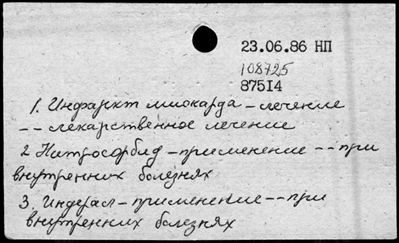 23.06.86 НП
108725
87514
1. Инфаркт миокарда - лечение
-- лекарственное лечение
2 Нитросорбид - применение -- при
внутренних болезнях
3. Индерал - применение -- при
внутренних болезнях